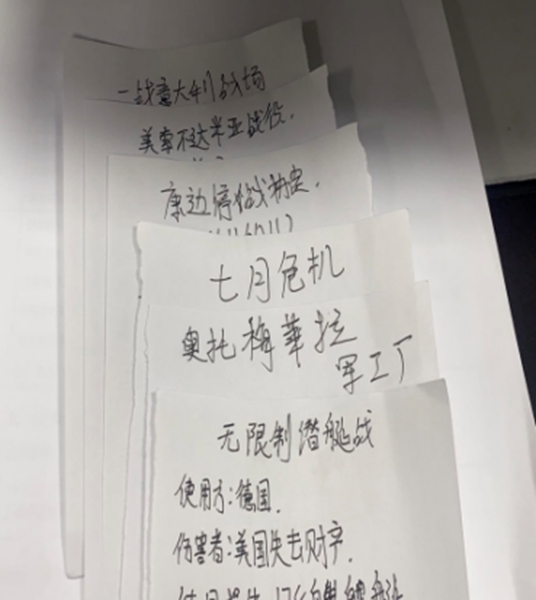 一战意大利战场
美索不达米亚战役.
康边停战协定.
七月危机
奥托梅萃拉
军工厂
无限制潜艇战
使用方:德国.
伤害者:美国失去财产.